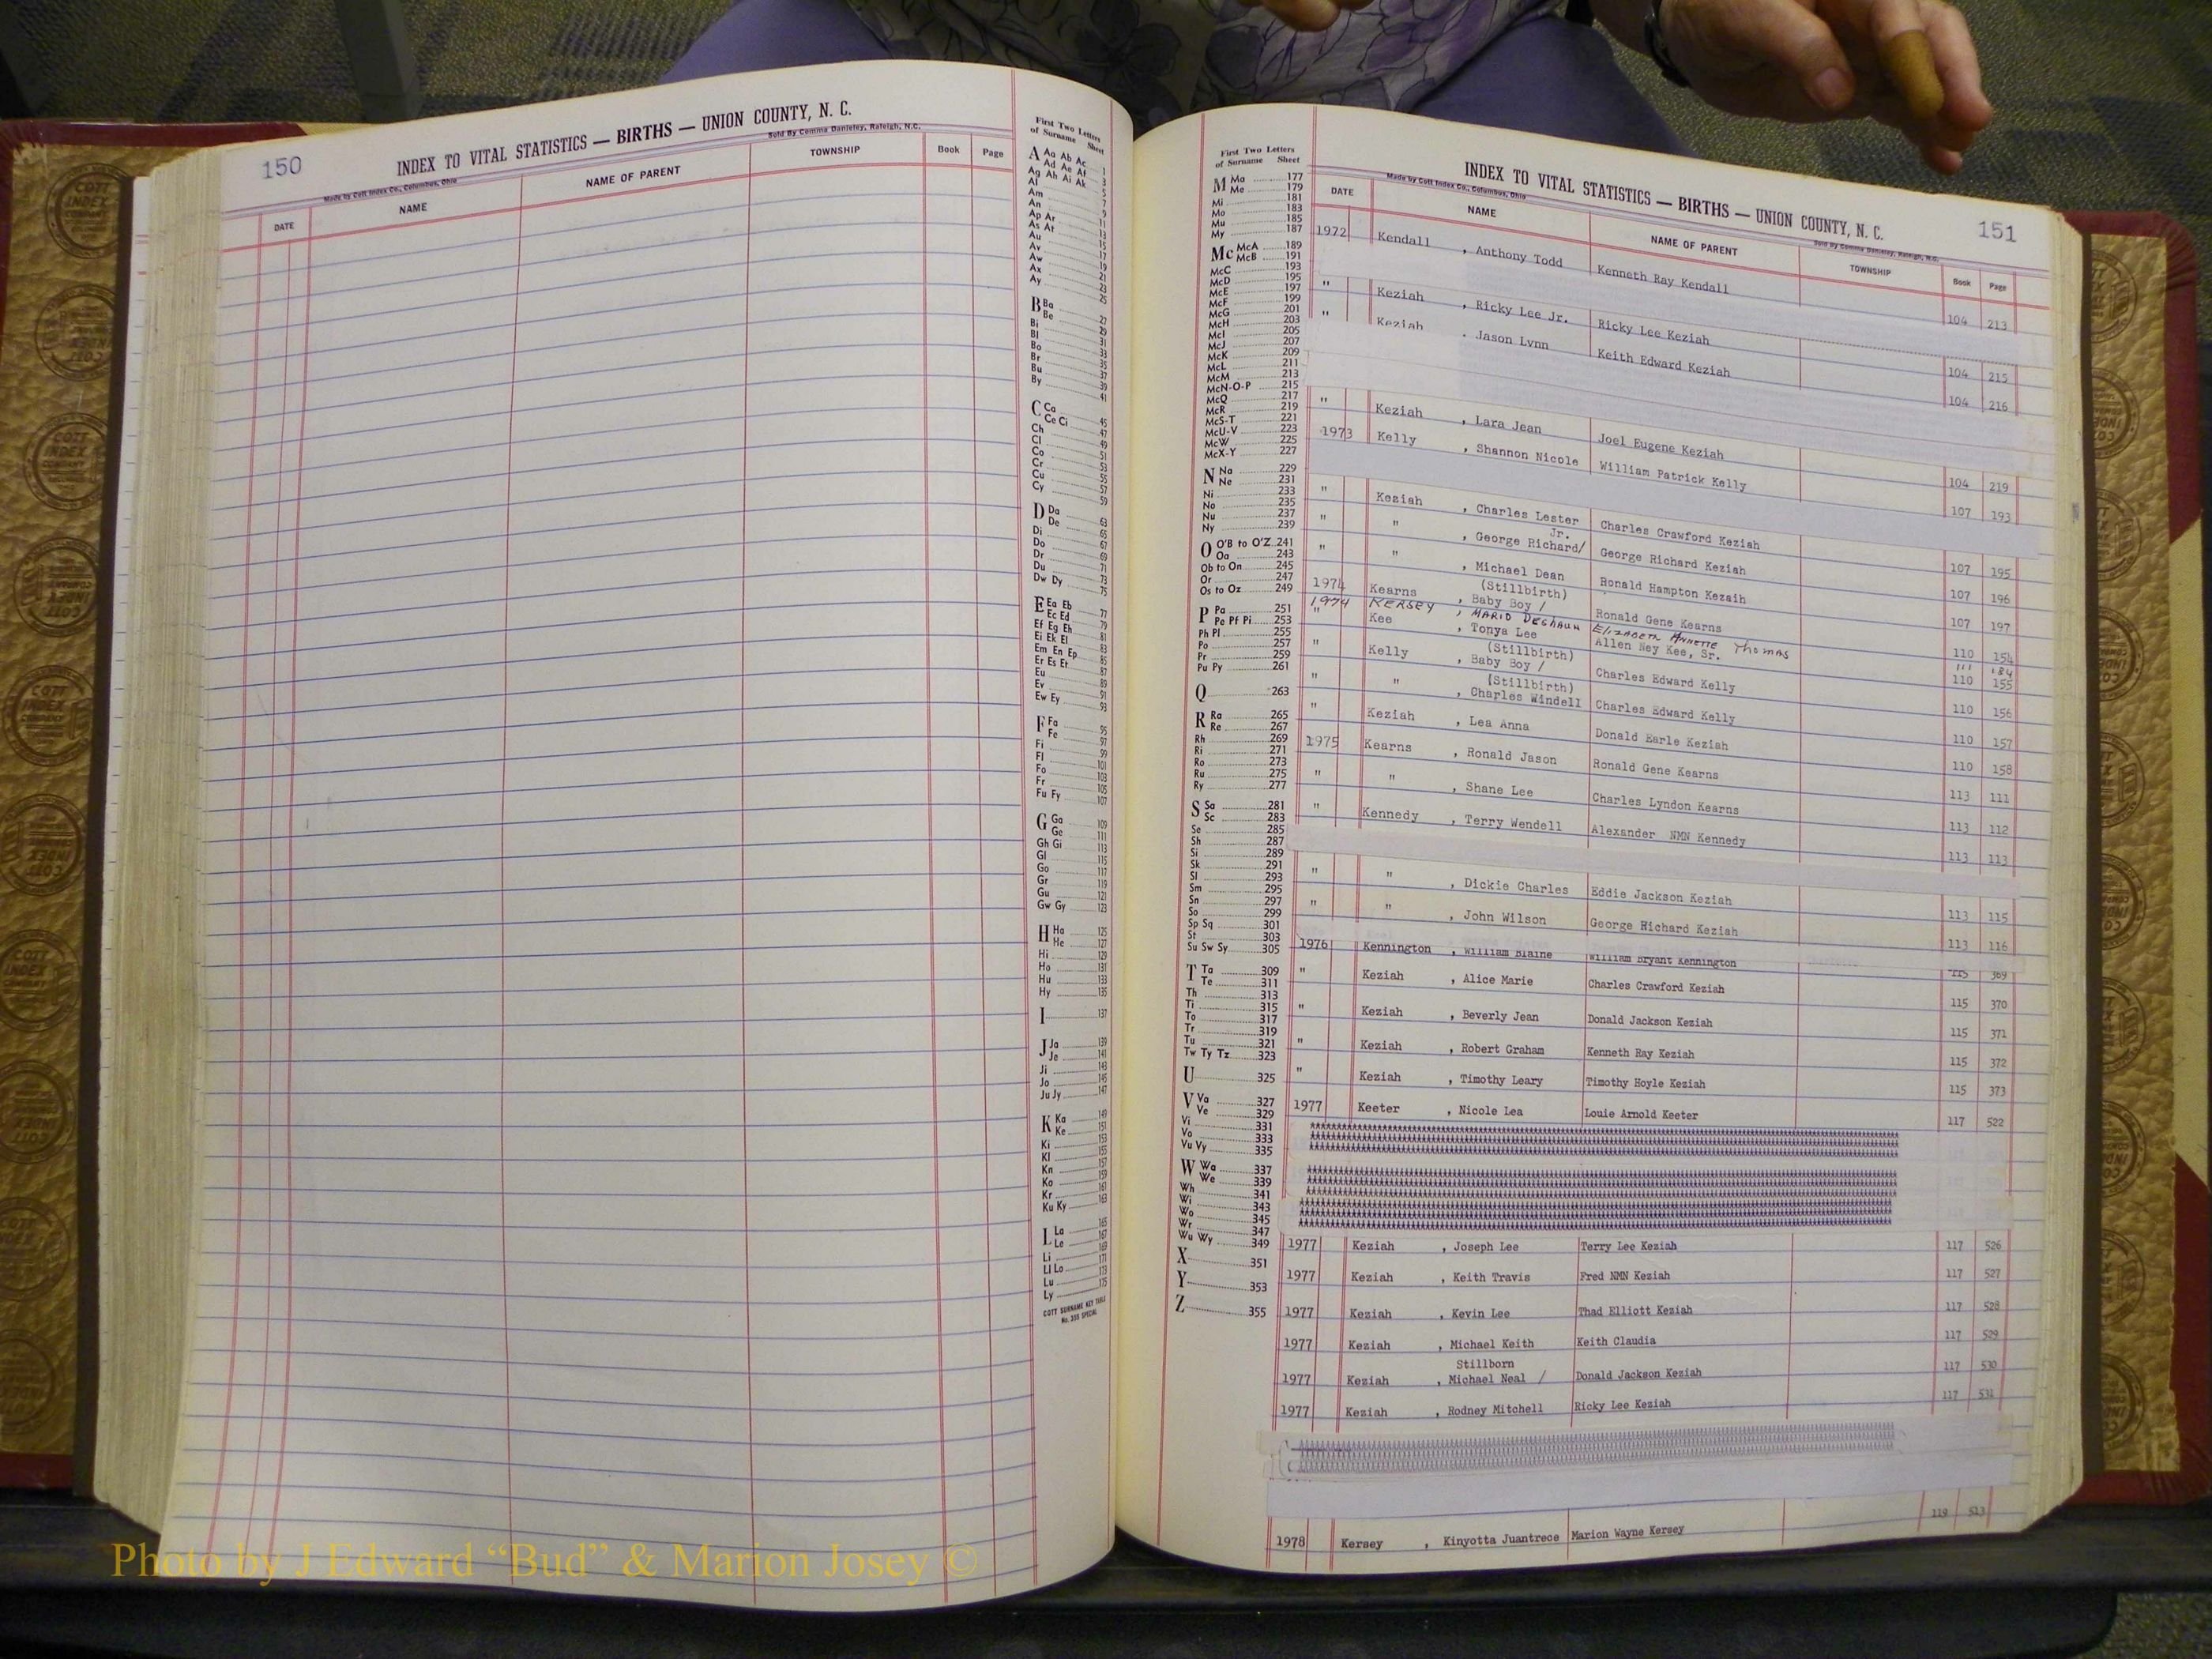 150
INDEX TO VITAL STATISTICS — BIRTHS — UNION COUNTY, N. C.
Made by Cott Index Co., Columbus, Ohio
Sold By Comma Danieley, Raleigh, N.C.
DATE NAME NAME OF PARENT TOWNSHIP Book Page
First Two Letters
of Surname Sheet
A Aa Ab Ac 1
Ad Ae Af 3
Ag Ah Ai Ak 5
Al 7
Am 9
An 11
Ap Ar 13
As At 15
Au 17
Av 19
Aw 21
Ax 23
Ay 25
B Ba 27
Be 29
Bi 31
Bl 33
Bo 35
Br 37
Bu 39
By 41
C Ca 45
Ce Ci 47
Ch 49
Cl 51
Co 53
Cr 55
Cu 57
Cy 59
D Da 63
De 65
Di 67
Do 69
Dr 71
Du 73
Dw Dy 75
E Ea Eb 77
Ec Ed 79
Ef Eg Eh 81
Ei Ek El 83
Em En Ep 85
Er Es Et 87
Eu 89
Ev 91
Ew Ey 93
F Fa 95
Fe 97
Fi 99
Fl 101
Fo 103
Fr 105
Fu Fy 107
G Ga 109
Ge 111
Gh Gi 113
Gl 115
Go 117
Gr 119
Gu 121
Gw Gy 123
H Ha 125
He 127
Hi 129
Ho 131
Hu 133
Hy 135
I 137
J Ja 139
Je 141
Ji 143
Jo 145
Ju Jy 147
K Ka 149
Ke 151
Ki 153
Kl 155
Kn 157
Ko 159
Kr 161
Ku Ky 163
L La 165
Le 167
Li 169
Ll Lo 173
Lu 175
Ly
COTT SURNAME KEY TABLE
No. 355 SPECIAL
151
INDEX TO VITAL STATISTICS — BIRTHS — UNION COUNTY, N. C.
Made by Cott Index Co., Columbus, Ohio
Sold By Comma Danieley, Raleigh, N.C.
DATE NAME NAME OF PARENT TOWNSHIP Book Page
First Two Letters
of Surname Sheet
M Ma 177
Me 179
Mi 181
Mo 183
Mu 185
My 187
Mc McA 189
McB 191
McC 193
McD 195
McE 197
McF 199
McG 201
McH 203
McI 205
McJ 207
McK 209
McL 211
McM 213
McN-O-P 215
McQ 217
McR 219
McS-T 221
McU-V 223
McW 225
McX-Y 227
N Na 229
Ne 231
Ni 233
No 235
Nu 237
Ny 239
O O'B to O'Z 241
Oa 243
Ob to On 245
Or 247
Os to Oz 249
P Pa 251
Pe Pf Pi 253
Ph Pl 255
Po 257
Pr 259
Pu Py 261
Q 263
R Ra 265
Re 267
Rh 269
Ri 271
Ro 273
Ru 275
Ry 277
S Sa 281
Sc 283
Se 285
Sh 287
Si 289
Sk 291
Sl 293
Sm 295
Sn 297
So 299
Sp Sq 301
St 303
Su Sw Sy 305
T Ta 309
Te 311
Th 313
Ti 315
To 317
Tr 319
Tu 321
Tw Ty Tz 323
U 325
V Va 327
Ve 329
Vi 331
Vo 333
Vu Vy 335
W Wa 337
We 339
Wh 341
Wi 343
Wo 345
Wr 347
Wu Wy 349
X 351
Y 353
Z 355
1972 Kendall , Anthony Todd Kenneth Ray Kendall 104 213
" Keziah , Ricky Lee Jr. Ricky Lee Keziah 104 215
" Keziah , Jason Lynn Keith Edward Keziah 104 216
" Keziah , Lara Jean Joel Eugene Keziah 104 219
1973 Kelly , Shannon Nicole William Patrick Kelly 107 193
" Keziah , Charles Lester Charles Crawford Keziah 107 195
Jr.
" " , George Richard/ George Richard Keziah 107 196
" " , Michael Dean Ronald Hampton Kezaih 107 197
(Stillbirth)
1974 Kearns , Baby Boy / Ronald Gene Kearns 110 154
1974 KERSEY , MARIO DESHAUN ELIZABETH ANNETTE Thomas 111 184
" Kee , Tonya Lee Allen Ney Kee, Sr. 110 155
(Stillbirth)
" Kelly , Baby Boy / Charles Edward Kelly 110 156
(Stillbirth)
" " , Charles Windell Charles Edward Kelly 110 157
" Keziah , Lea Anna Donald Earle Keziah 110 158
1975 Kearns , Ronald Jason Ronald Gene Kearns 113 111
" " , Shane Lee Charles Lyndon Kearns 113 112
" Kennedy , Terry Wendell Alexander NMN Kennedy 113 113
" " , Dickie Charles Eddie Jackson Keziah 113 115
" " , John Wilson George Richard Keziah 113 116
1976 Kennington , William Blaine William Bryant Kennington 115 369
" Keziah , Alice Marie Charles Crawford Keziah 115 370
" Keziah , Beverly Jean Donald Jackson Keziah 115 371
" Keziah , Robert Graham Kenneth Ray Keziah 115 372
" Keziah , Timothy Leary Timothy Hoyle Keziah 115 373
1977 Keeter , Nicole Lea Louie Arnold Keeter 117 522
1977 Keziah , Joseph Lee Terry Lee Keziah 117 526
1977 Keziah , Keith Travis Fred NMN Keziah 117 527
1977 Keziah , Kevin Lee Thad Elliott Keziah 117 528
1977 Keziah , Michael Keith Keith Claudia 117 529
Stillborn
1977 Keziah , Michael Neal / Donald Jackson Keziah 117 530
1977 Keziah , Rodney Mitchell Ricky Lee Keziah 117 531
1978 Kersey , Kinyotta Juantrece Marion Wayne Kersey 119 513
Photo by J Edward “Bud” & Marion Josey ©